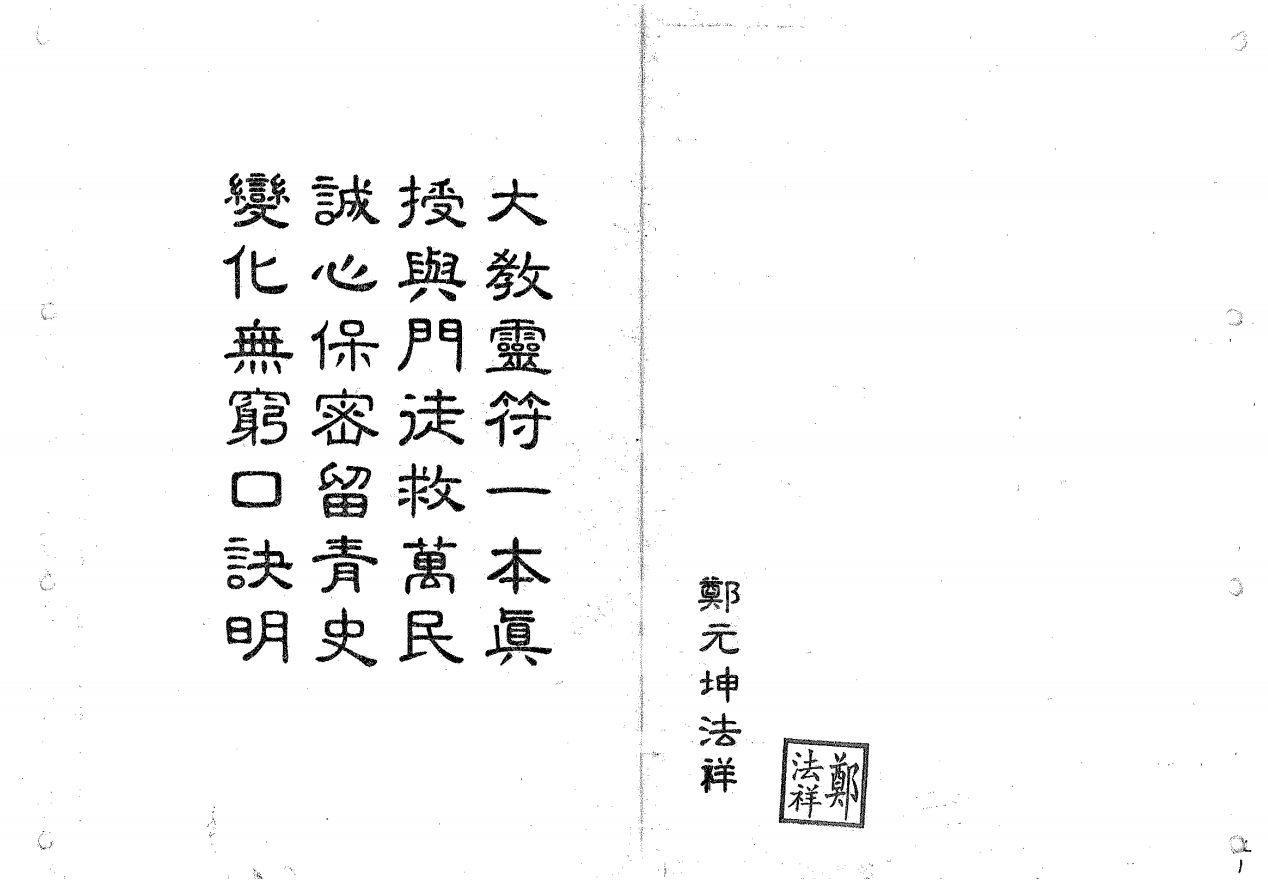 鄭元坤法祥
鄭
法祥
大教靈符一本眞
授與門徒救萬民
誠心保密留青史
變化無窮口訣明
1